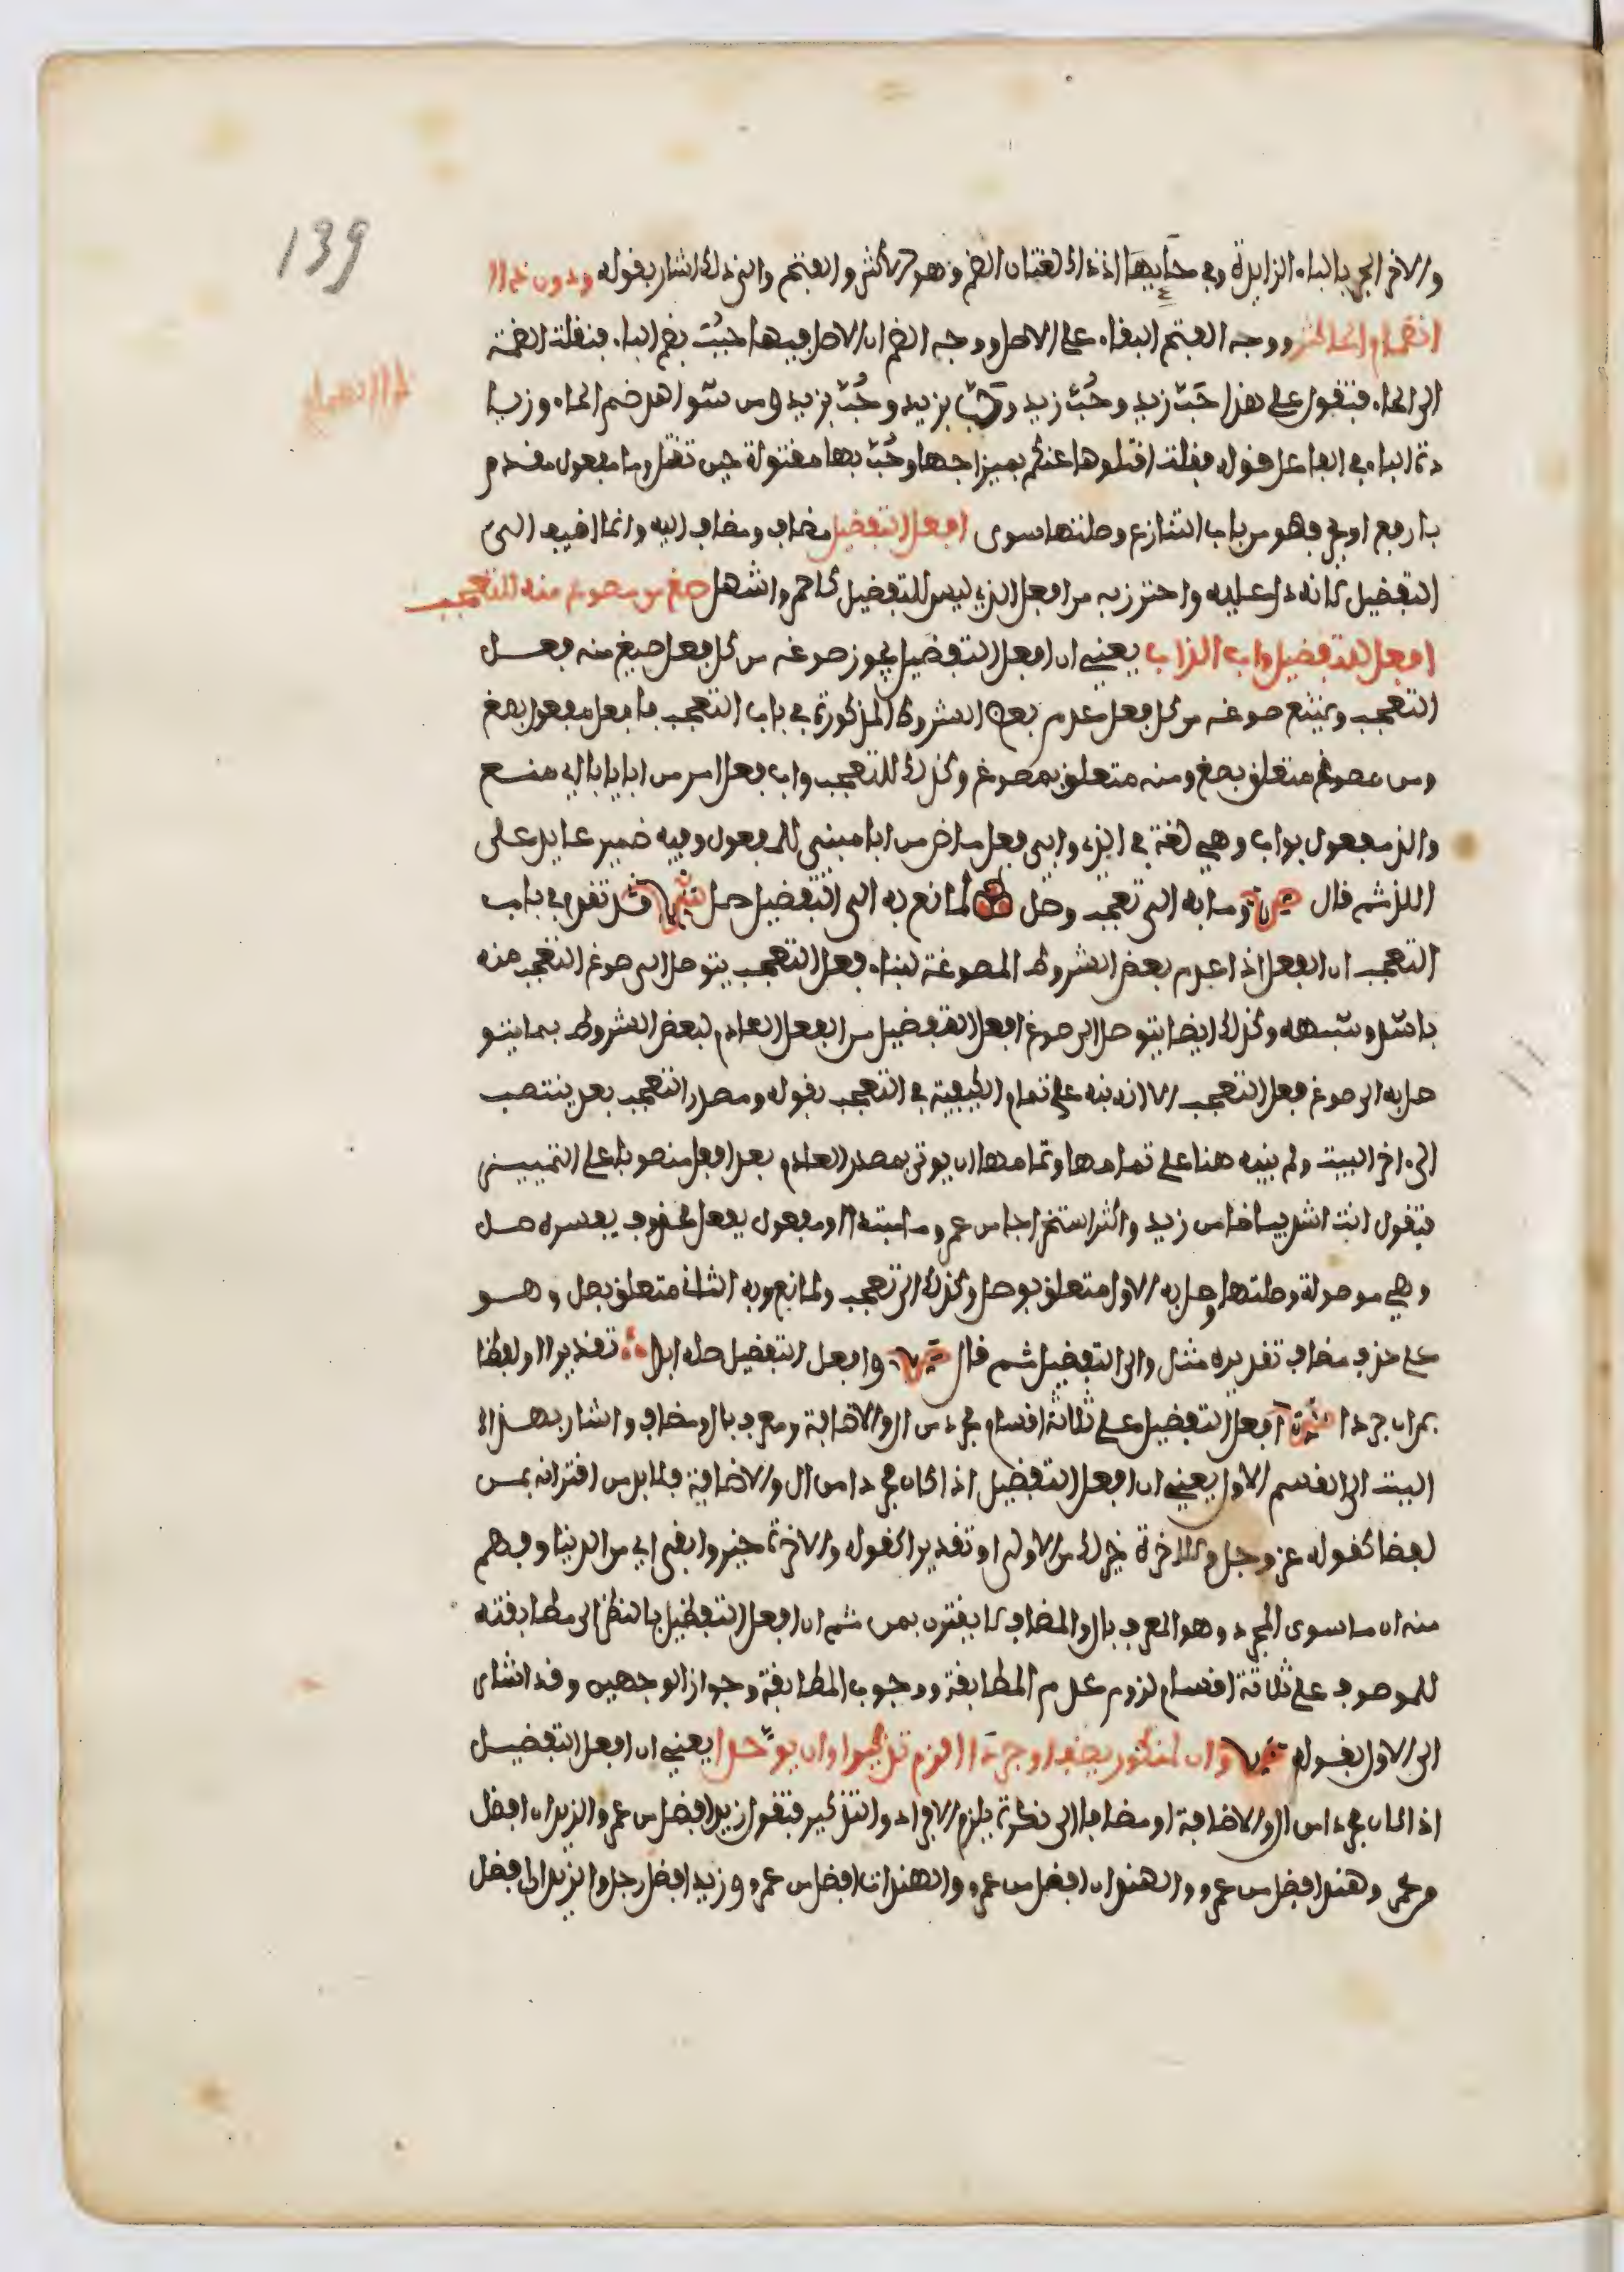 139
والاخر الجر بالباء الزايدة وفي حايها اذ ذاك لغتان الضم وهو الاكثر والفتح والى ذلك اشار بقوله ودون ذا ا
انضمام الحا كثر ووجه الفتح البقاء على الاصل ووجه الضم ان الاصل فيها حبب بضم الباء فنقلت الضمة
الى الحاء فتقول على هذا حَبّ زيد وحُبّ زيد وحَبّ بزيد وحُبّ بزيد ومن شواهد ضم الحاء وزيا
دة الباء في الفاعل قوله فقلت اقتلوها عنكم بمزاجها وحُبّ بها مقتولة حين تقتل وما مفعول مقدم
بارفع او جر فهو من باب التنازع وصلتها سوى افعل التفضيل مضاف ومضاف اليه وانما اضيف الى
التفضيل لانه دل عليه واحترز به من افعل الذي ليس للتفضيل كاحمر واشهل صغ من مصوغ منه للتعجب
افعل للتفضيل واب اللذ اب يعني ان افعل التفضيل يجوز صوغه من كل فعل صيغ منه فعل
التعجب ويمتنع صوغه من كل فعل عدم بعض الشروط المذكورة في باب التعجب فافعل مفعول بصغ
ومن مصوغ متعلق بصغ ومنه متعلق بمصوغ وكذلك للتعجب واب فعل امر من ابا يابا اي منع
والذ مفعول بواب وهي لغة في الذي وابي فعل ماض من ابا مبني للمفعول وفيه ضمير عايد على
اللذ ثم قال وما به الى تعجب وصل لمانع به الى التفضيل صل ش قد تقدم في باب
التعجب ان الفعل اذا عدم بعض الشروط المصوغة لبناء فعل التعجب يتوصل الى صوغ التعجب منه
باشد وشبهه وكذلك ايضا يتوصل الى صوغ افعل التفضيل من الفعل العادم لبعض الشروط بما يتو
صل به الى صوغ فعل التعجب الا انه نبه على تمام الكيفية في التعجب بقوله ومصدر التعجب بعد ينتصب
الى اخر البيت ولم ينبه هنا على تمامها وتمامها ان يوتى بمصدر العادم بعد افعل منصوبا على التمييز
فتقول انت اشد بياضا من زيد واكثر استخراجا من عمرو وما مبتدا او مفعول بفعل محذوف يفسره صل
وهي موصولة وصلتها وصل به الاول متعلق بوصل وكذلك الى تعجب ولمانع وبه الثاني متعلق بصل وهو
على حذف مضاف تقديره مثل والى التفضيل ثم قال وافعل التفضيل صله ابدا تقديرا او لفظا
بمن ان جردا افعل التفضيل على ثلاثة اقسام مجرد من ال والاضافة ومعرف بال ومضاف واشار بهذا
البيت الى القسم الاول يعني ان افعل التفضيل اذا كان مجردا من ال والاضافة فلا بد من اقترانه بمن
لفظا كقوله عز وجل وللاخرة خير لك من الاولى او تقديرا كقوله والاخرة خير وابقى اي من الدنيا وفهم
منه ان ما سوى المجرد وهو المعرف بال والمضاف لا يقترن بمن ثم ان افعل التفظيل بالنظر الى مطابقته
للموصوف على ثلاثة اقسام لزوم عدم المطابقة ووجوب المطابقة وجواز الوجهين وقد اشار
الى الاول بقوله وان لمنكور يضف او جردا الزم تذكيرا وان يوحدا يعني ان افعل التفضيل
اذا كان مجردا من ال والاضافة او مضافا الى نكرة يلزم الافراد والتذكير فتقول زيد افضل من عمرو والزيدان افضل
من عمرو وهند افضل من عمرو والهندان افضل من عمرو والهندات افضل من عمرو وزيد افضل رجل والزيدان افضل